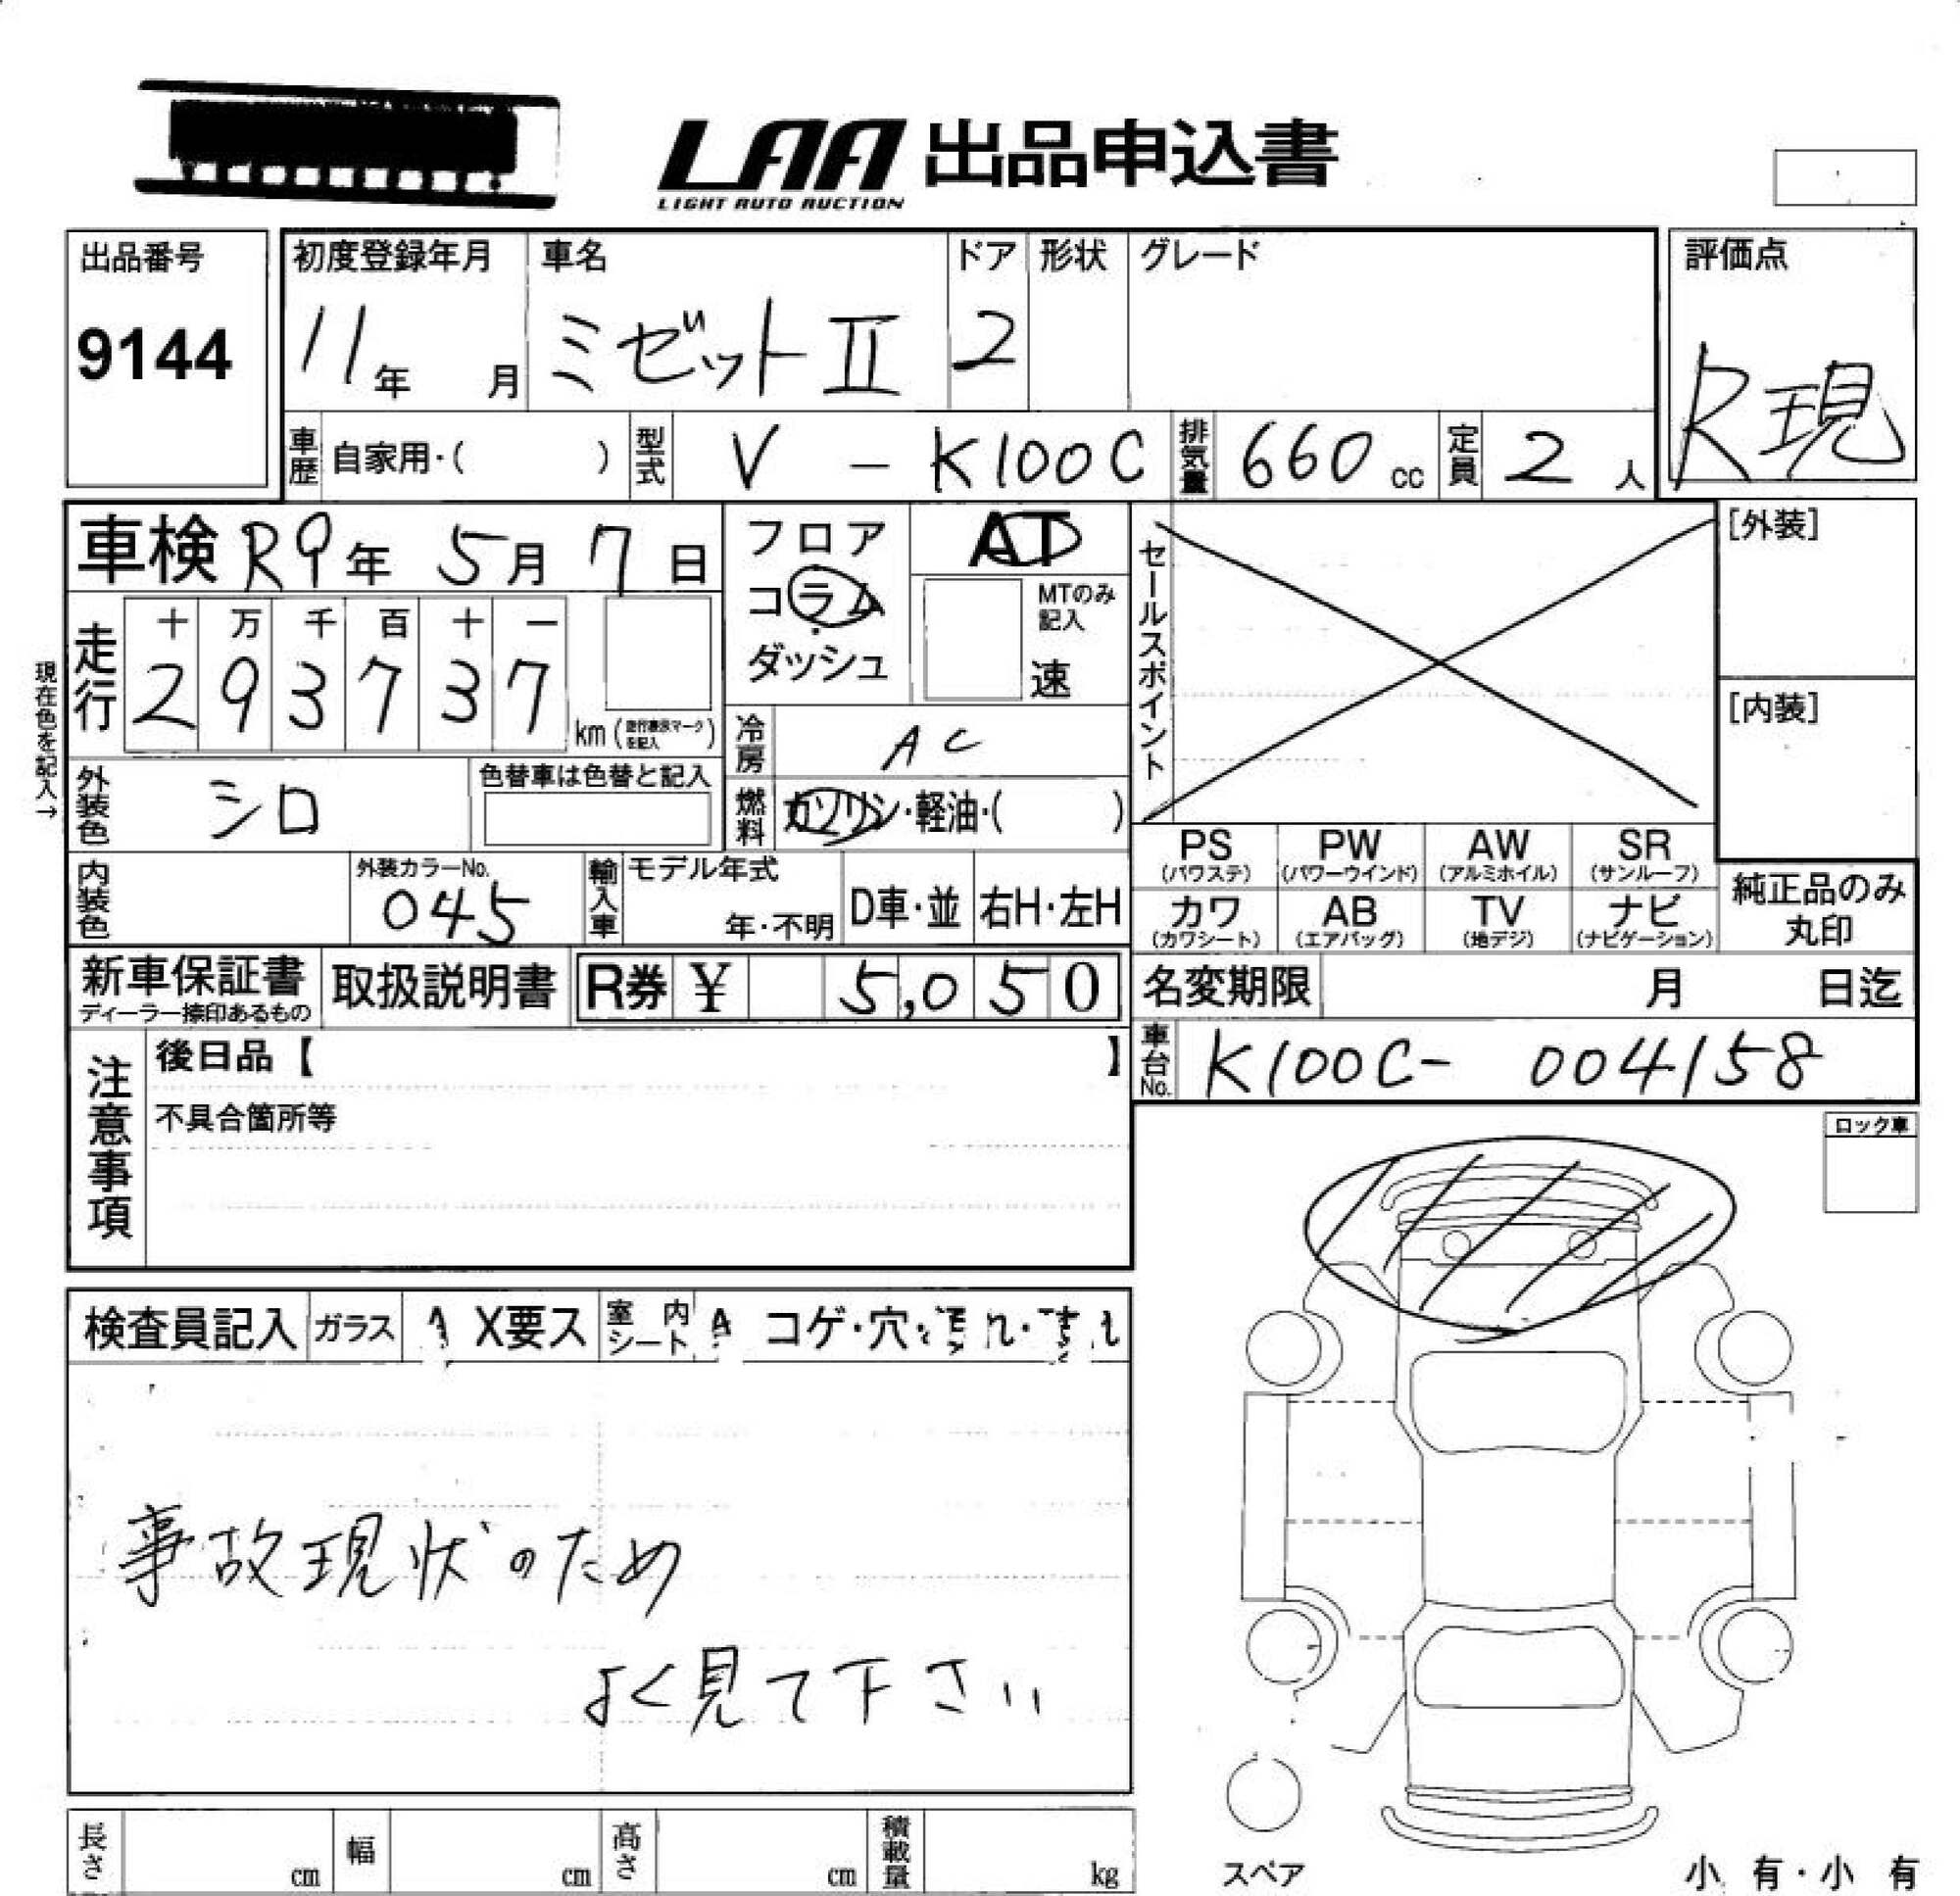 LAA 出品申込書
LIGHT AUTO AUCTION
出品番号
9144
初度登録年月
11年 月
車名
ミゼットⅡ
ドア
2
形状
グレード
評価点
R現
車歴 自家用・( )
型式 V - K100C
排気量 660 cc
定員 2 人
車検 R9年 5月 7日
走行
十 万 千 百 十 一
2 9 3 7 3 7
km (走行表示マークを記入)
現在色を記入→
フロア
コラム
ダッシュ
AT
MTのみ記入
速
冷房 AC
燃料 ガソリン・軽油・( )
外装色 シロ
色替車は色替と記入
内装色
外装カラーNo.
045
輸入車
モデル年式
年・不明
D車・並
右H・左H
セールスポイント
[外装]
[内装]
PS (パワステ)
PW (パワーウインド)
AW (アルミホイル)
SR (サンルーフ)
カワ (カワシート)
AB (エアバッグ)
TV (地デジ)
ナビ (ナビゲーション)
純正品のみ
丸印
新車保証書
ディーラー捺印あるもの
取扱説明書
R券 ¥ 5,050
名変期限 月 日迄
車台No. K100C- 004158
注意事項
後日品【 】
不具合箇所等
ロック車
検査員記入 ガラス X要ス 室内シート コゲ・穴・
事故現状のため
よく見て下さい
長さ cm
幅 cm
高さ cm
積載量 kg
スペア
小 有・小 有